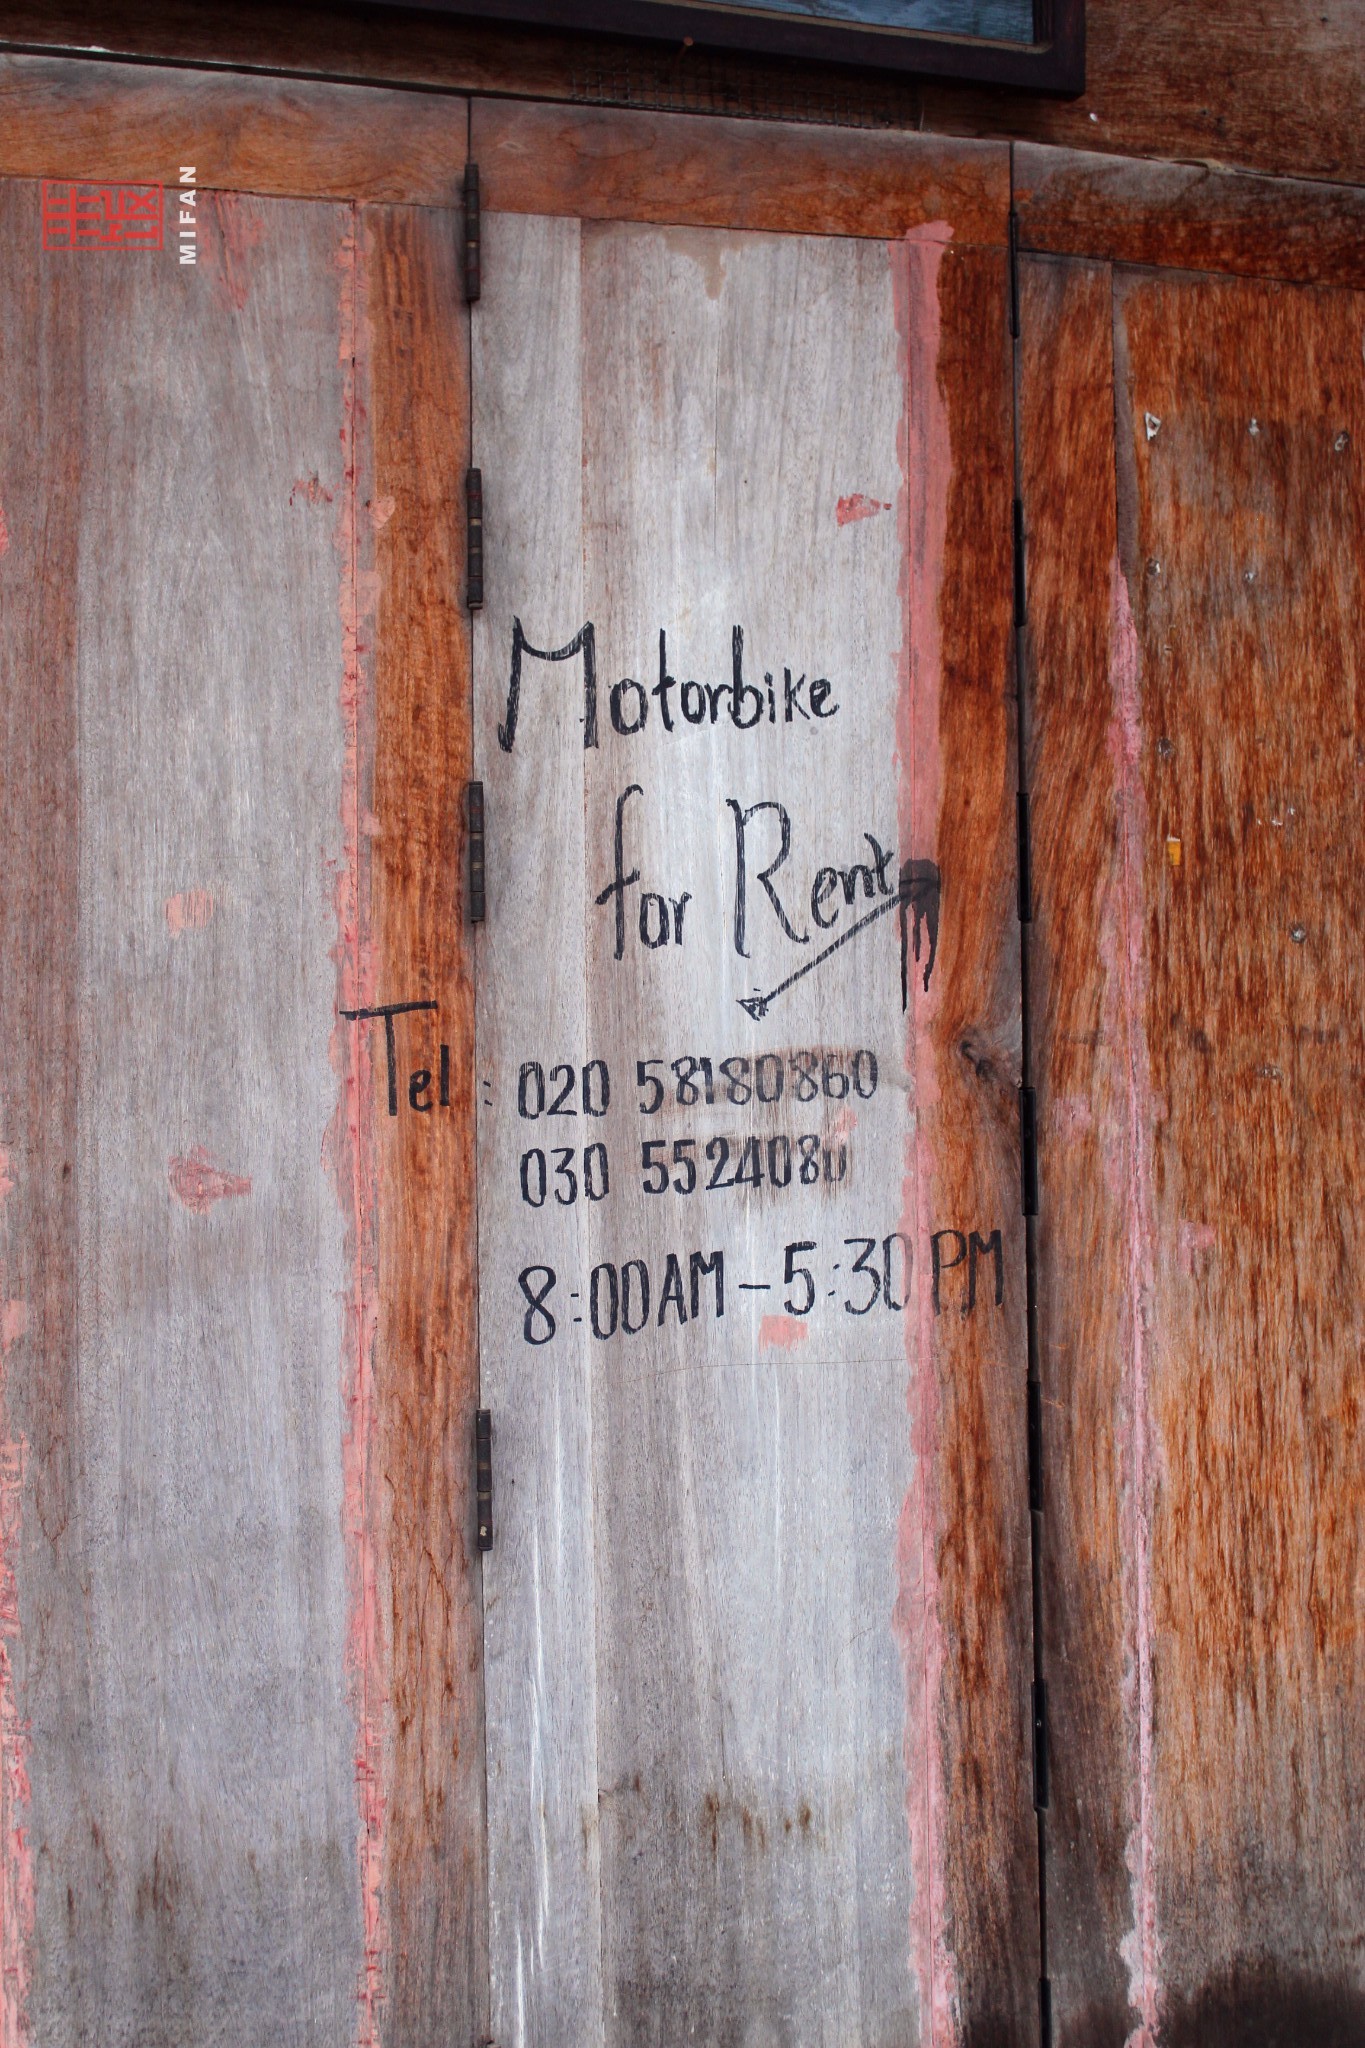 MIFAN
Motorbike
for Rent
Tel: 020 58180860
030 5524080
8:00AM-5:30PM